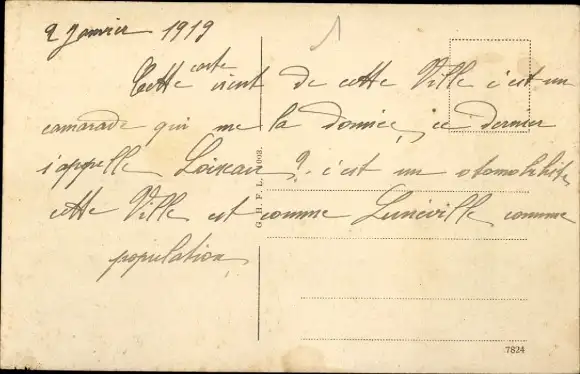 2 Janvier 1919
1
carte
Cette vient de cette Ville c'est un
camarade qui me la donnée, ce dernier
s'appelle Loiseau ?. c'est un otomobiliste,
cette Ville est comme Lunéville comme
population,
G. H. F. L.
7824